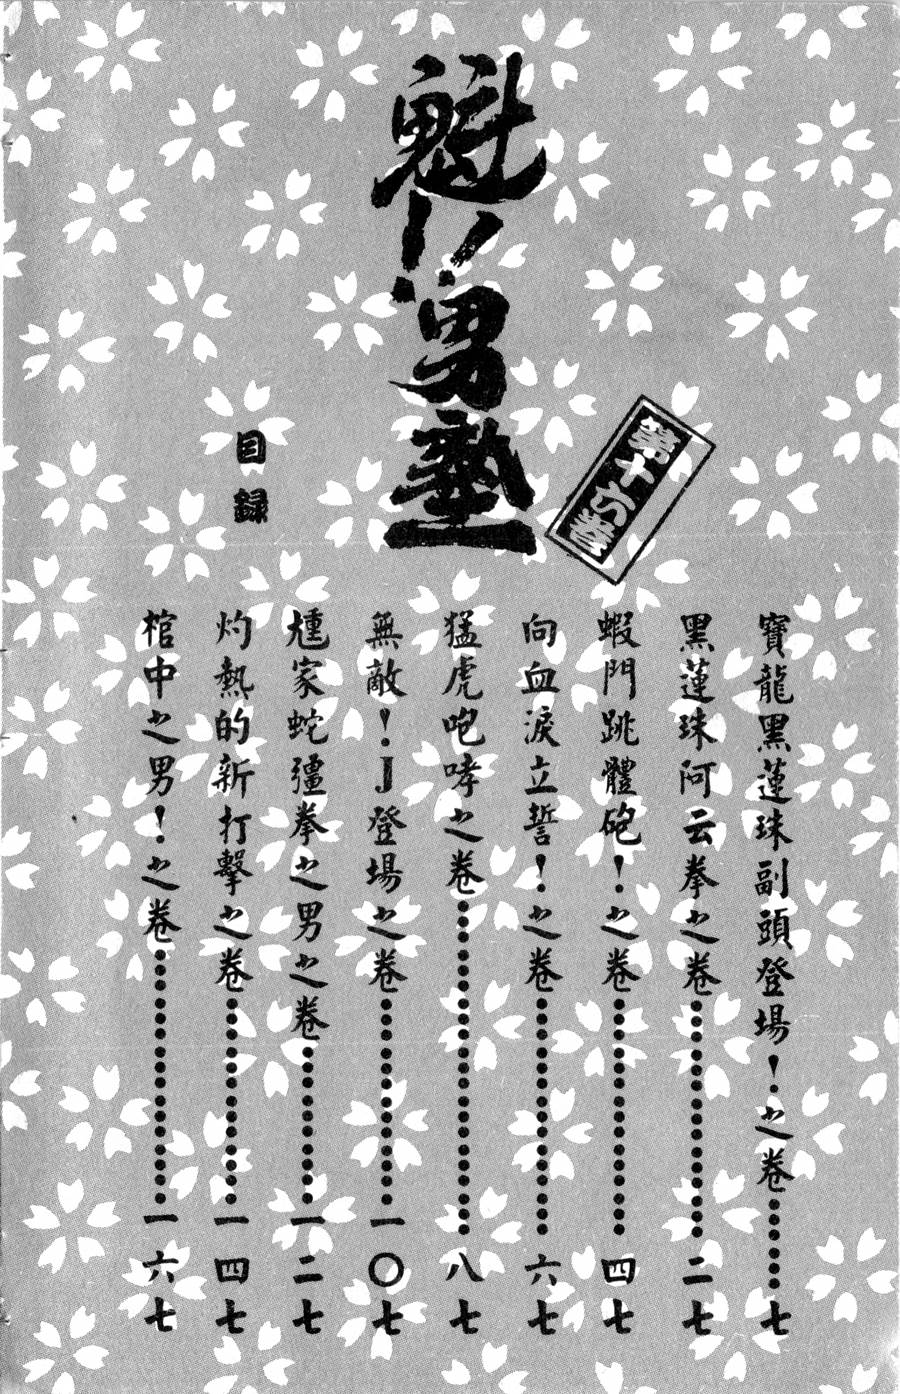 魁!!男塾
第十六卷
目錄
寶龍黑蓮珠副頭登場!之卷……七
黑蓮珠阿云拳之卷……二七
蝦門跳體砲!之卷……四七
向血淚立誓!之卷……六七
猛虎咆哮之卷……八七
無敵!J登場之卷……一〇七
尰家蛇彊拳之男之卷……一二七
灼熱的新打擊之卷……一四七
棺中之男!之卷……一六七